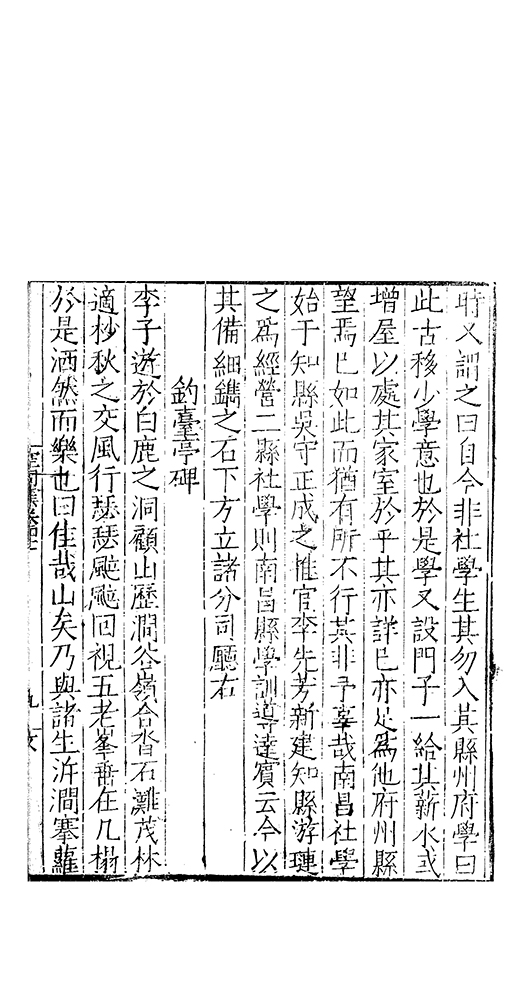 時又謂之曰自今非社學生其勿入其縣州府學曰
此古移少學意也於是學又設門子一給其薪水或
增屋以處其家室於乎其亦詳已亦足為他府州縣
望焉已如此而猶有所不行其非予辜哉南昌社學
始于知縣吳守正成之惟官李先芳新建知縣游璉
之為經營二縣社學則南昌縣學訓導達賓云今以
其備細鐫之石下方立諸分司廳右
釣臺亭碑
李子遊於白鹿之洞顧山歷澗谷嶺合沓石灘茂林
適杪秋之交風行瑟瑟颼颼回視五老峯垂在几榻
於是洒然而樂也曰佳哉山矣乃與諸生泝澗搴蘿
空同集卷四
九